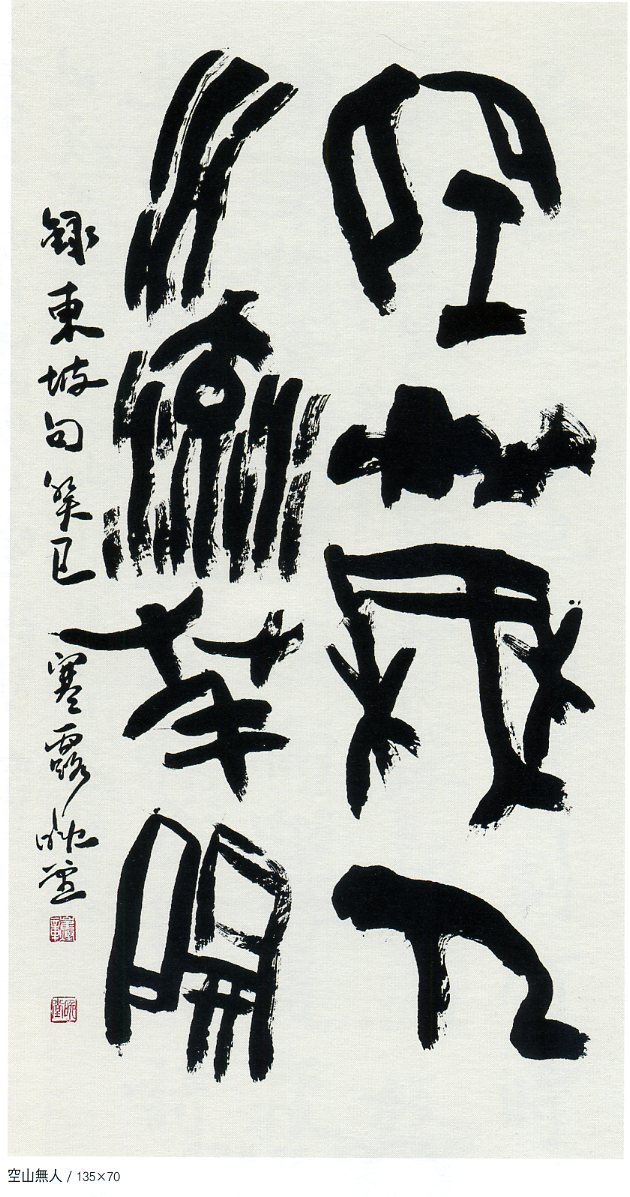 空山無人
水流華開
錄東坡句癸巳寒露晩堂
空山無人 / 135×70